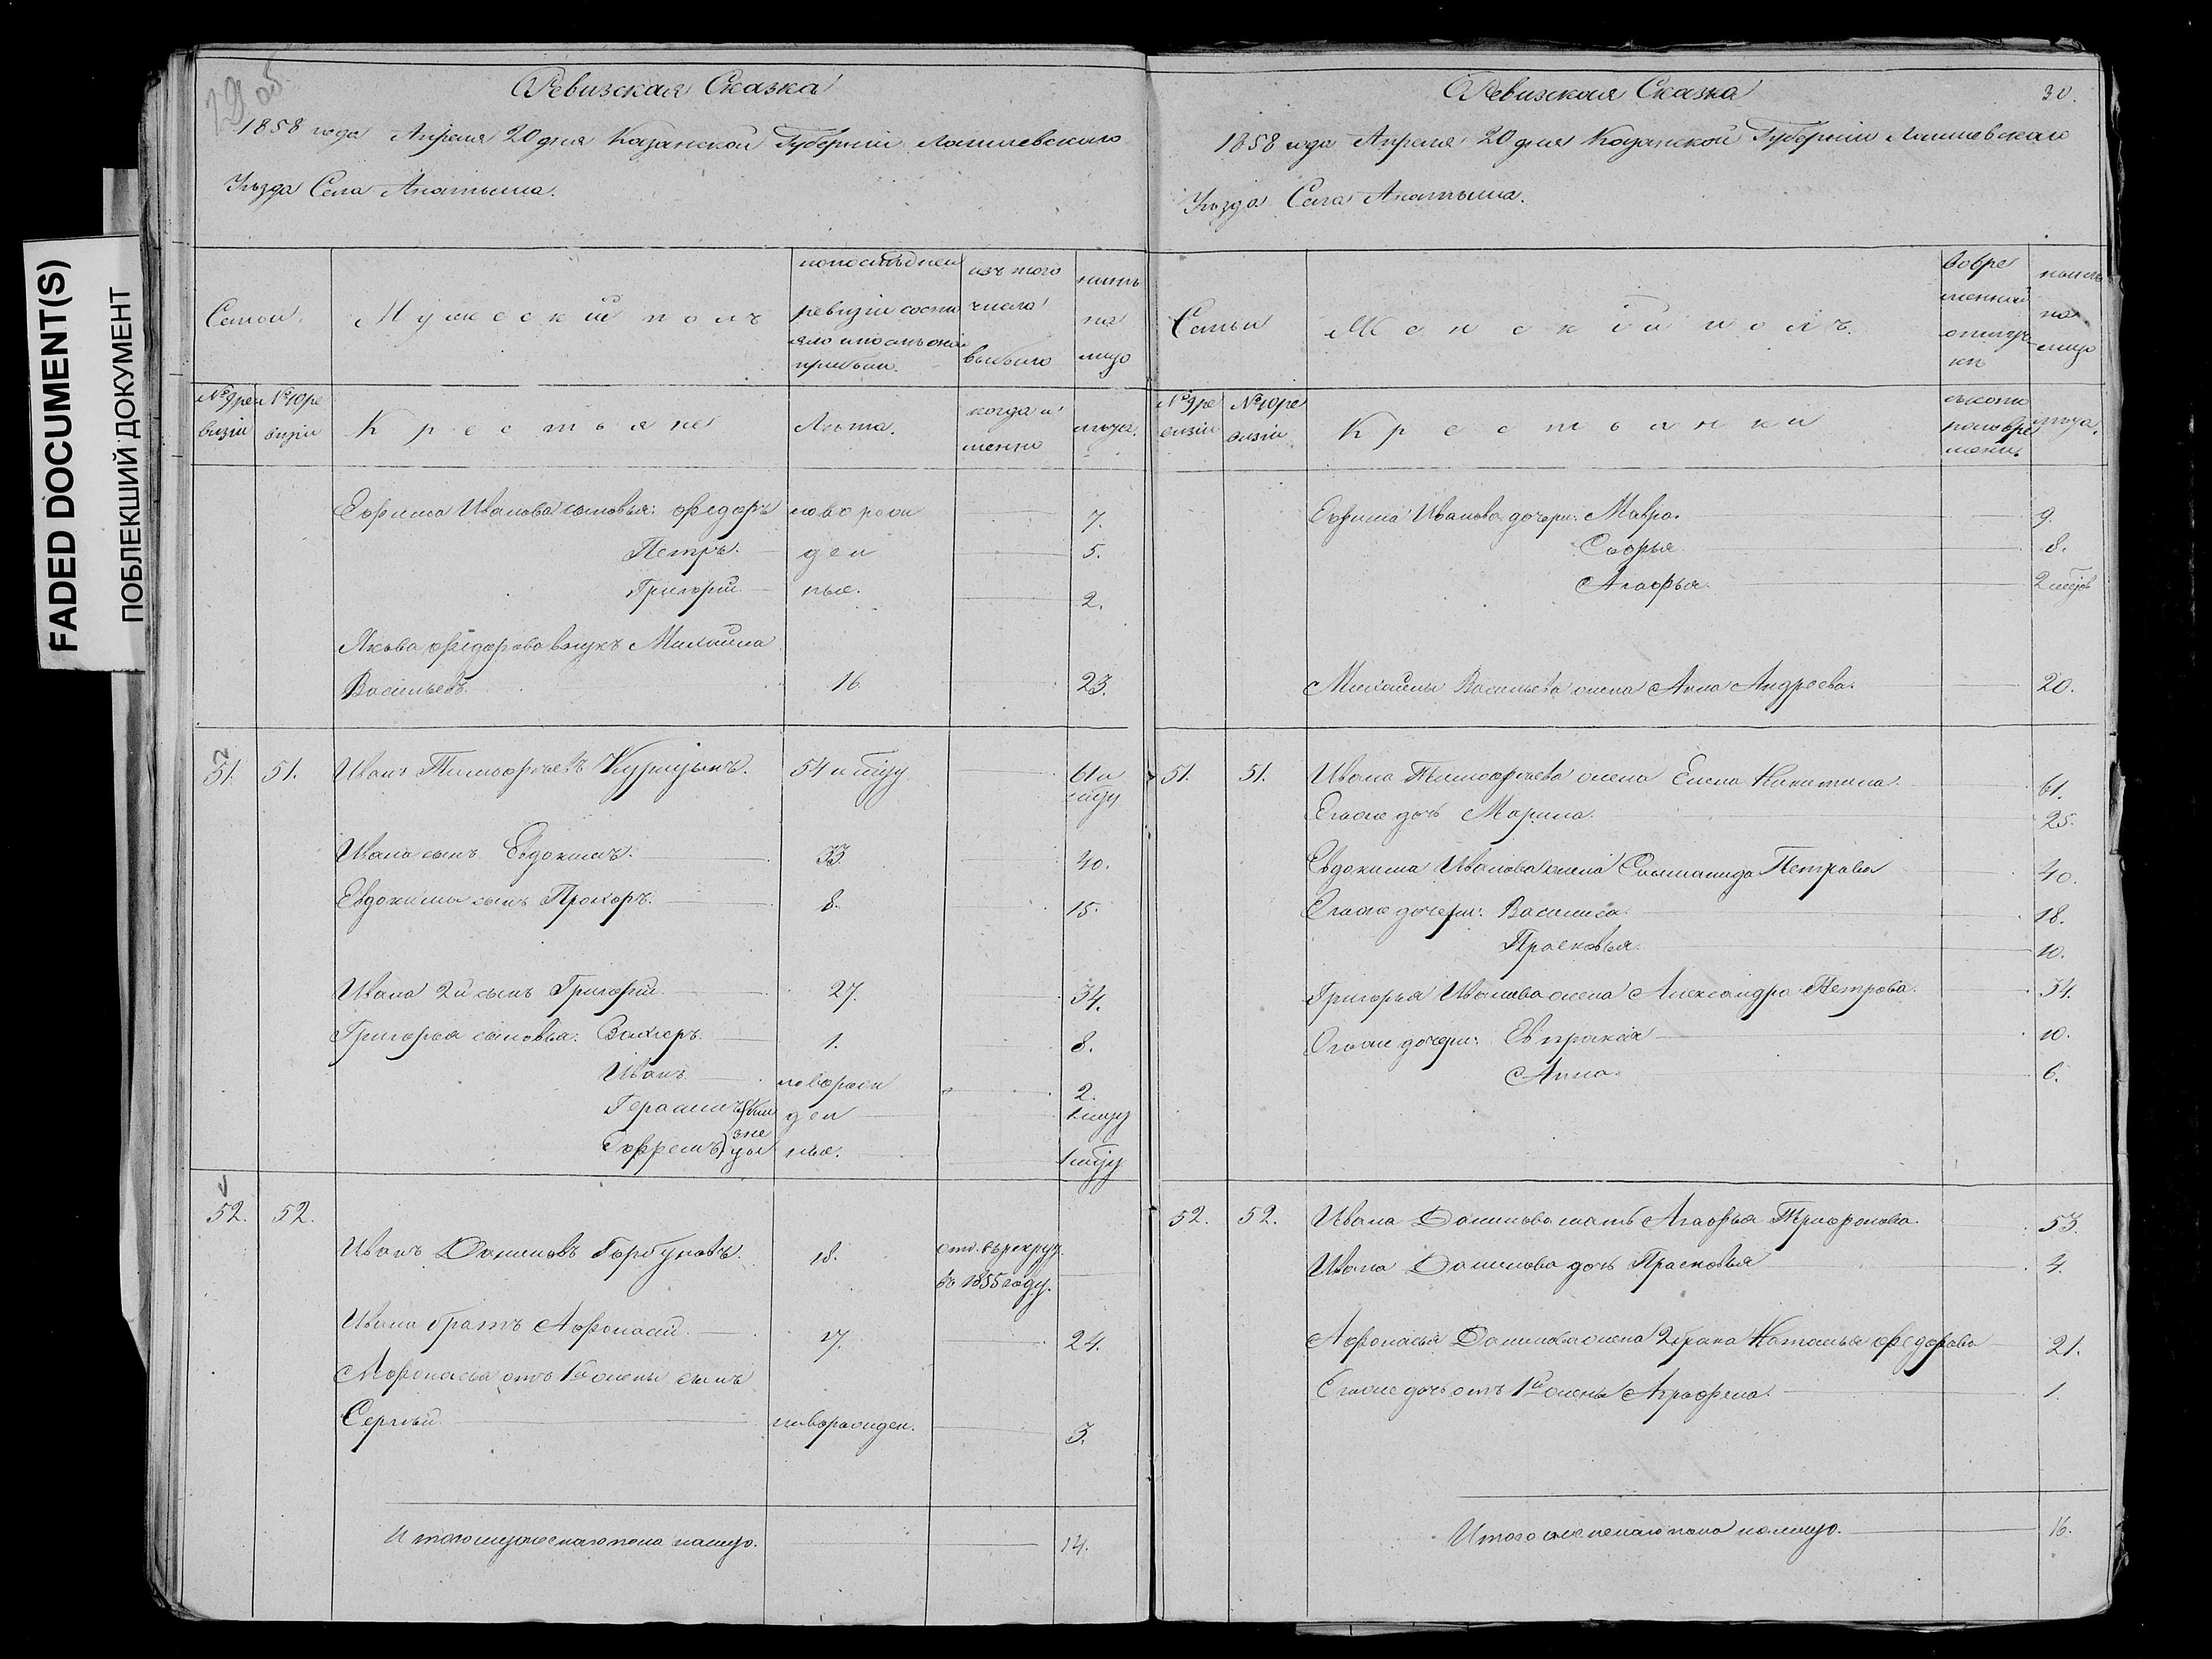 FADED DOCUMENT(S)
ПОБЛЕКШИЙ ДОКУМЕНТ
29 об.
Ревизская Сказка
1858 года Апреля 20 дня Казанской Губернии Лаишевскаго
Уѣзда Села Анатыша.
Семьи.
Мужеский полъ
попослѣдней
ревизіи состо
яло ипослѣ оной
прибыли.
изъ того
числа
выбыло
нынѣ
на
лицо
№ 9 ре
визіи
№ 10 ре
визіи
Крестьяне
Лѣта.
когда и
менно
лѣта.
Ефима Иванова сыновья: Федоръ новорож 7.
Петръ. ден 5.
Григорій ные. 2.
Якова Федорова внукъ Михайла
Васильевъ 16 23.
51. 51. Иванъ Тимофѣевъ 54 61
Ивана сынъ Евдокимъ. 33 40.
Евдокима сынъ Прохоръ. 8. 15.
Ивана 2й сынъ Григорій 27. 34.
Григорья сыновья: 1. 8.
Иванъ новорож 2.
Герасимъ бли ден 1
Ефремъ) зне цы ные. 1
52. 52.
Иванъ Даниловъ Горбуновъ. 18. отд. въ рекрут.
въ 1855 году.
Ивана братъ Афонасій 17. 24.
Афонасья отъ 1й жены сынъ
Сергѣй новорожден. 3.
Итого мужескаго пола налицо. 14.
Ревизская Сказка 30.
1858 года Апреля 20 дня Казанской Губерніи Лаишевскаго
Уѣзда Села Анатыша.
Семьи
Женскій полъ.
вовре
менной
отлуч
кѣ
нынѣ
на
лицо
№ 9 ре
визіи
№ 10 ре
визіи
Крестьянки
съкото
раговре
мени
лѣта.
Ефима Иванова дочери: Мавра. 9.
Софья 8.
Агафья. 2
Михайлы Васильева жена Анна Андреева. 20.
51. 51. Ивана Тимофѣева жена Елена Никитина. 61.
Егоже дочь Марина. 25.
Евдокима Иванова жена Соломанида Петрова 40.
Егоже дочери: Василиса. 18.
Прасковья. 10.
Григорья Иванова жена Александра Петрова. 34.
Егоже дочери: Евпраксія 10.
Анна. 6.
52. 52. Ивана Данилова мать Агафья Трофонова. 53.
Ивана Данилова дочь Прасковья 4.
Афонасья Данилова жена 2 брака Наталья Федорова 21.
Егоже дочь отъ 1й жены Аграфена. 1.
Итого женскаго пола налицо. 16.